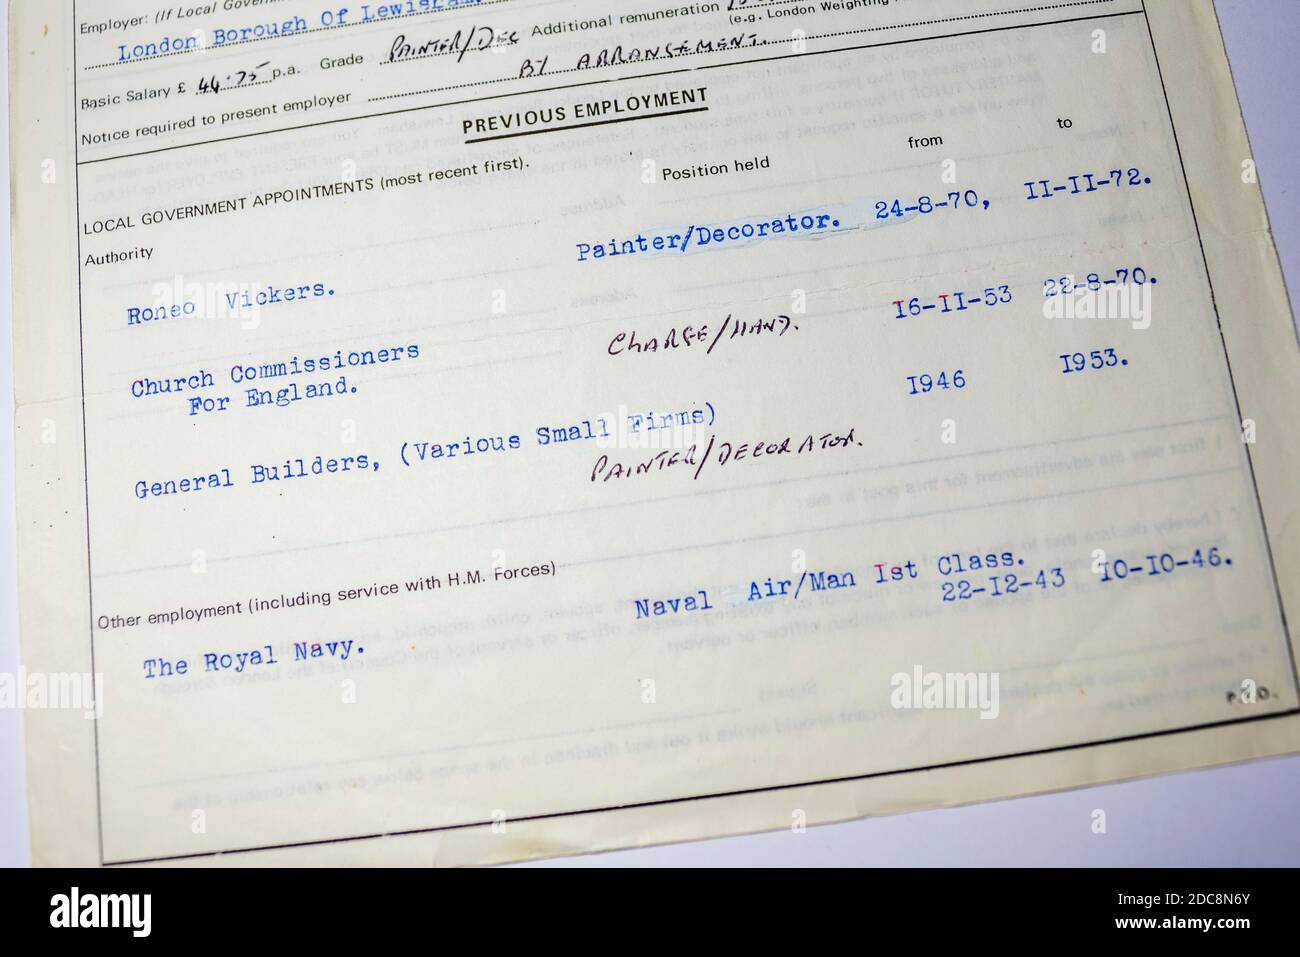 Employer: (If Local Gover
London Borough Of Lewisham
Basic Salary £ 44.75 p.a. Grade PAINTER/DEC Additional remuneration
(e.g. London Weighting
Notice required to present employer BY ARRANGEMENT.
PREVIOUS EMPLOYMENT
LOCAL GOVERNMENT APPOINTMENTS (most recent first). Position held from to
Authority
Roneo Vickers. Painter/Decorator. 24-8-70, II-II-72.
Church Commissioners CHARGE/HAND. I6-II-53 22-8-70.
For England.
General Builders, (Various Small Firms) I946 I953.
PAINTER/DECORATOR.
Other employment (including service with H.M. Forces)
The Royal Navy. Naval Air/Man Ist Class.
22-I2-43 IO-IO-46.
P.T.O.
alamy
Image ID: 2DC8N6Y
www.alamy.com